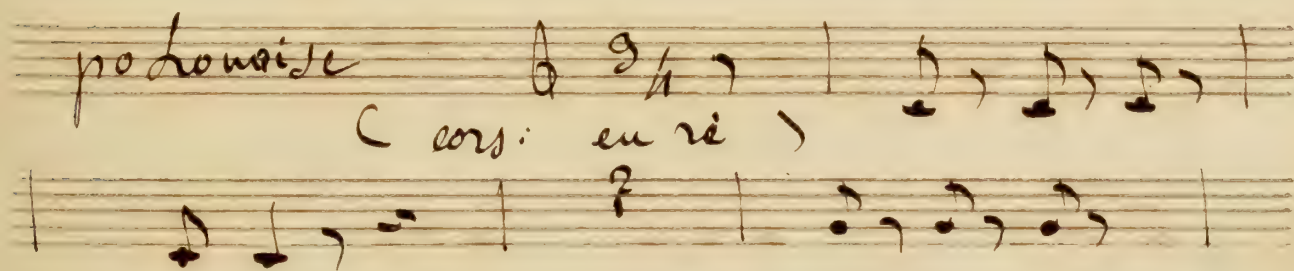 polonaise 3/4
( cors: en ré )
2